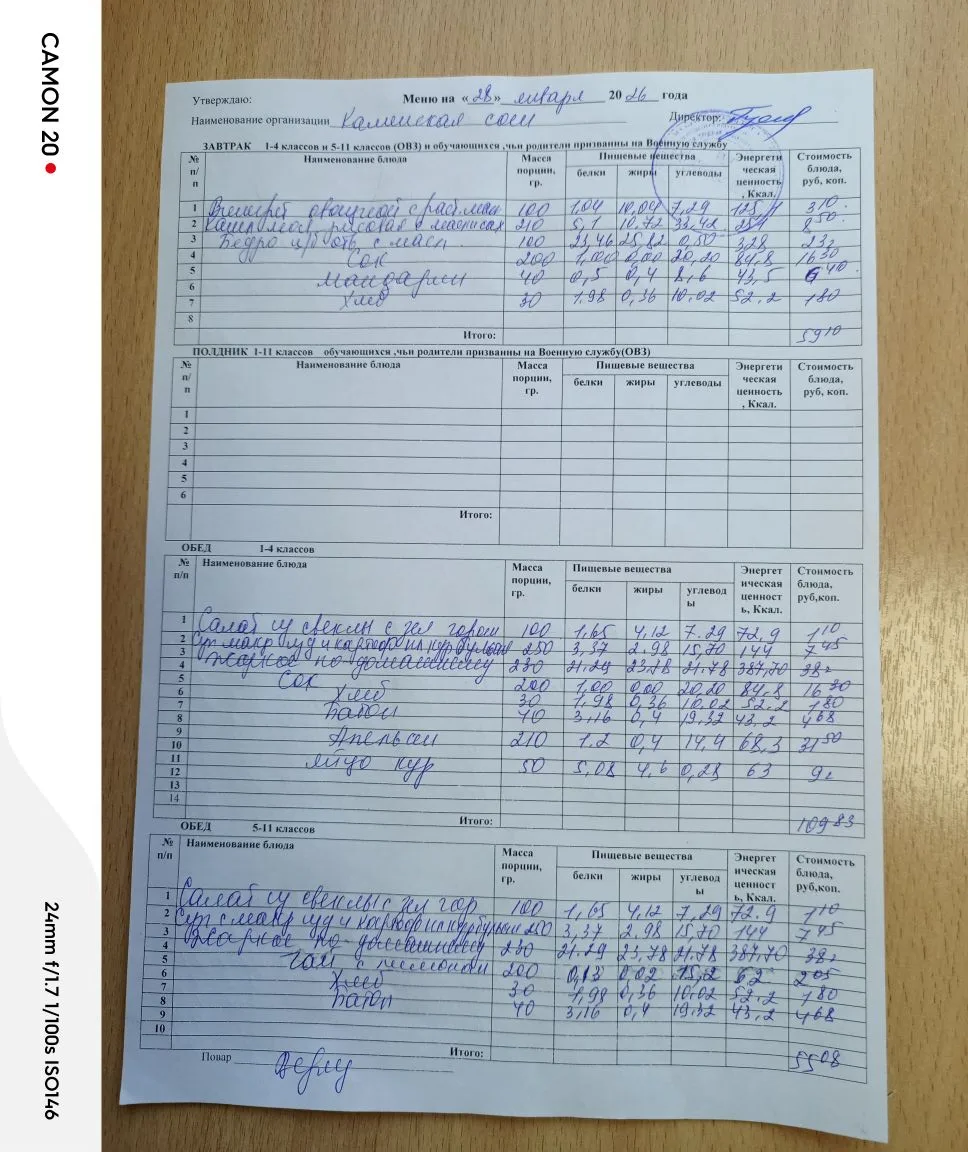 CAMON 20
24mm f/1.7 1/100s ISO146
Утверждаю: Меню на «28» января 2026 года
Наименование организации Каменская сош Директор:
ЗАВТРАК 1-4 классов и 5-11 классов (ОВЗ) и обучающихся ,чьи родители призваны на Военную службу
№ п/п Наименование блюда Масса порции, гр. Пищевые вещества Энергетическая ценность, Ккал. Стоимость блюда, руб, коп.
белки жиры углеводы
1 Винегрет овощной с раст.мас 100 1,04 10,04 7,29 125,1 3 10
2 Каша мол. рисовая с маслом 210 5,1 10,72 33,42 251 8 50
3 Бедро ц/б отв с масл. 100 23,46 25,82 0,50 328 23
4 Сок 200 1,00 0,00 20,20 84,8 16 30
5 мандарин 40 0,5 0,4 8,6 43,5 6 40
6 Хлеб 30 1,98 0,36 10,02 52,2 1 80
7
8
Итого: 59 10
ПОЛДНИК 1-11 классов обучающихся ,чьи родители призванны на Военную службу(ОВЗ)
№ п/п Наименование блюда Масса порции, гр. Пищевые вещества Энергетическая ценность, Ккал. Стоимость блюда, руб, коп.
белки жиры углеводы
1
2
3
4
5
6
Итого:
ОБЕД 1-4 классов
№ п/п Наименование блюда Масса порции, гр. Пищевые вещества Энергетическая ценность, Ккал. Стоимость блюда, руб,коп.
белки жиры углеводы
1 Салат из свеклы с зел горош 100 1,65 4,12 7.29 72,9 1 10
2 Суп макр изд и картоф на кур бульон 250 3,37 2.98 15,70 144 7 45
3 Жаркое по-домашнему 230 21.29 23.78 21.78 387,70 38
4
5 Сок 200 1,00 0,00 20,20 84,8 16 30
6 Хлеб 30 1,98 0,36 10,02 52.2 1 80
7 Батон 40 3,16 0,4 19,32 43,2 4 68
8
9 Апельсин 210 1.2 0,4 14,4 68,3 31 50
10
11 яйцо кур 50 5,08 4,6 0,28 63 9
12
13
14
Итого: 109 83
ОБЕД 5-11 классов
№ п/п Наименование блюда Масса порции, гр. Пищевые вещества Энергетическая ценность, Ккал. Стоимость блюда, руб,коп.
белки жиры углеводы
1 Салат из свеклы с зел гор 100 1,65 4,12 7,29 72.9 1 10
2 Суп с макр изд и картоф на кур бульон 250 3,37 2.98 15,70 144 7 45
3 Жаркое по-домашнему 230 21.29 23,78 21.78 387,70 38
4
5 Чай с лимоном 200 0,13 0,02 15,2 62 2 05
6 Хлеб 30 1,99 0,36 10,02 52.2 1 80
7 Батон 40 3,16 0,4 19,32 43,2 4 68
8
9
10
Итого: 55 08
Повар